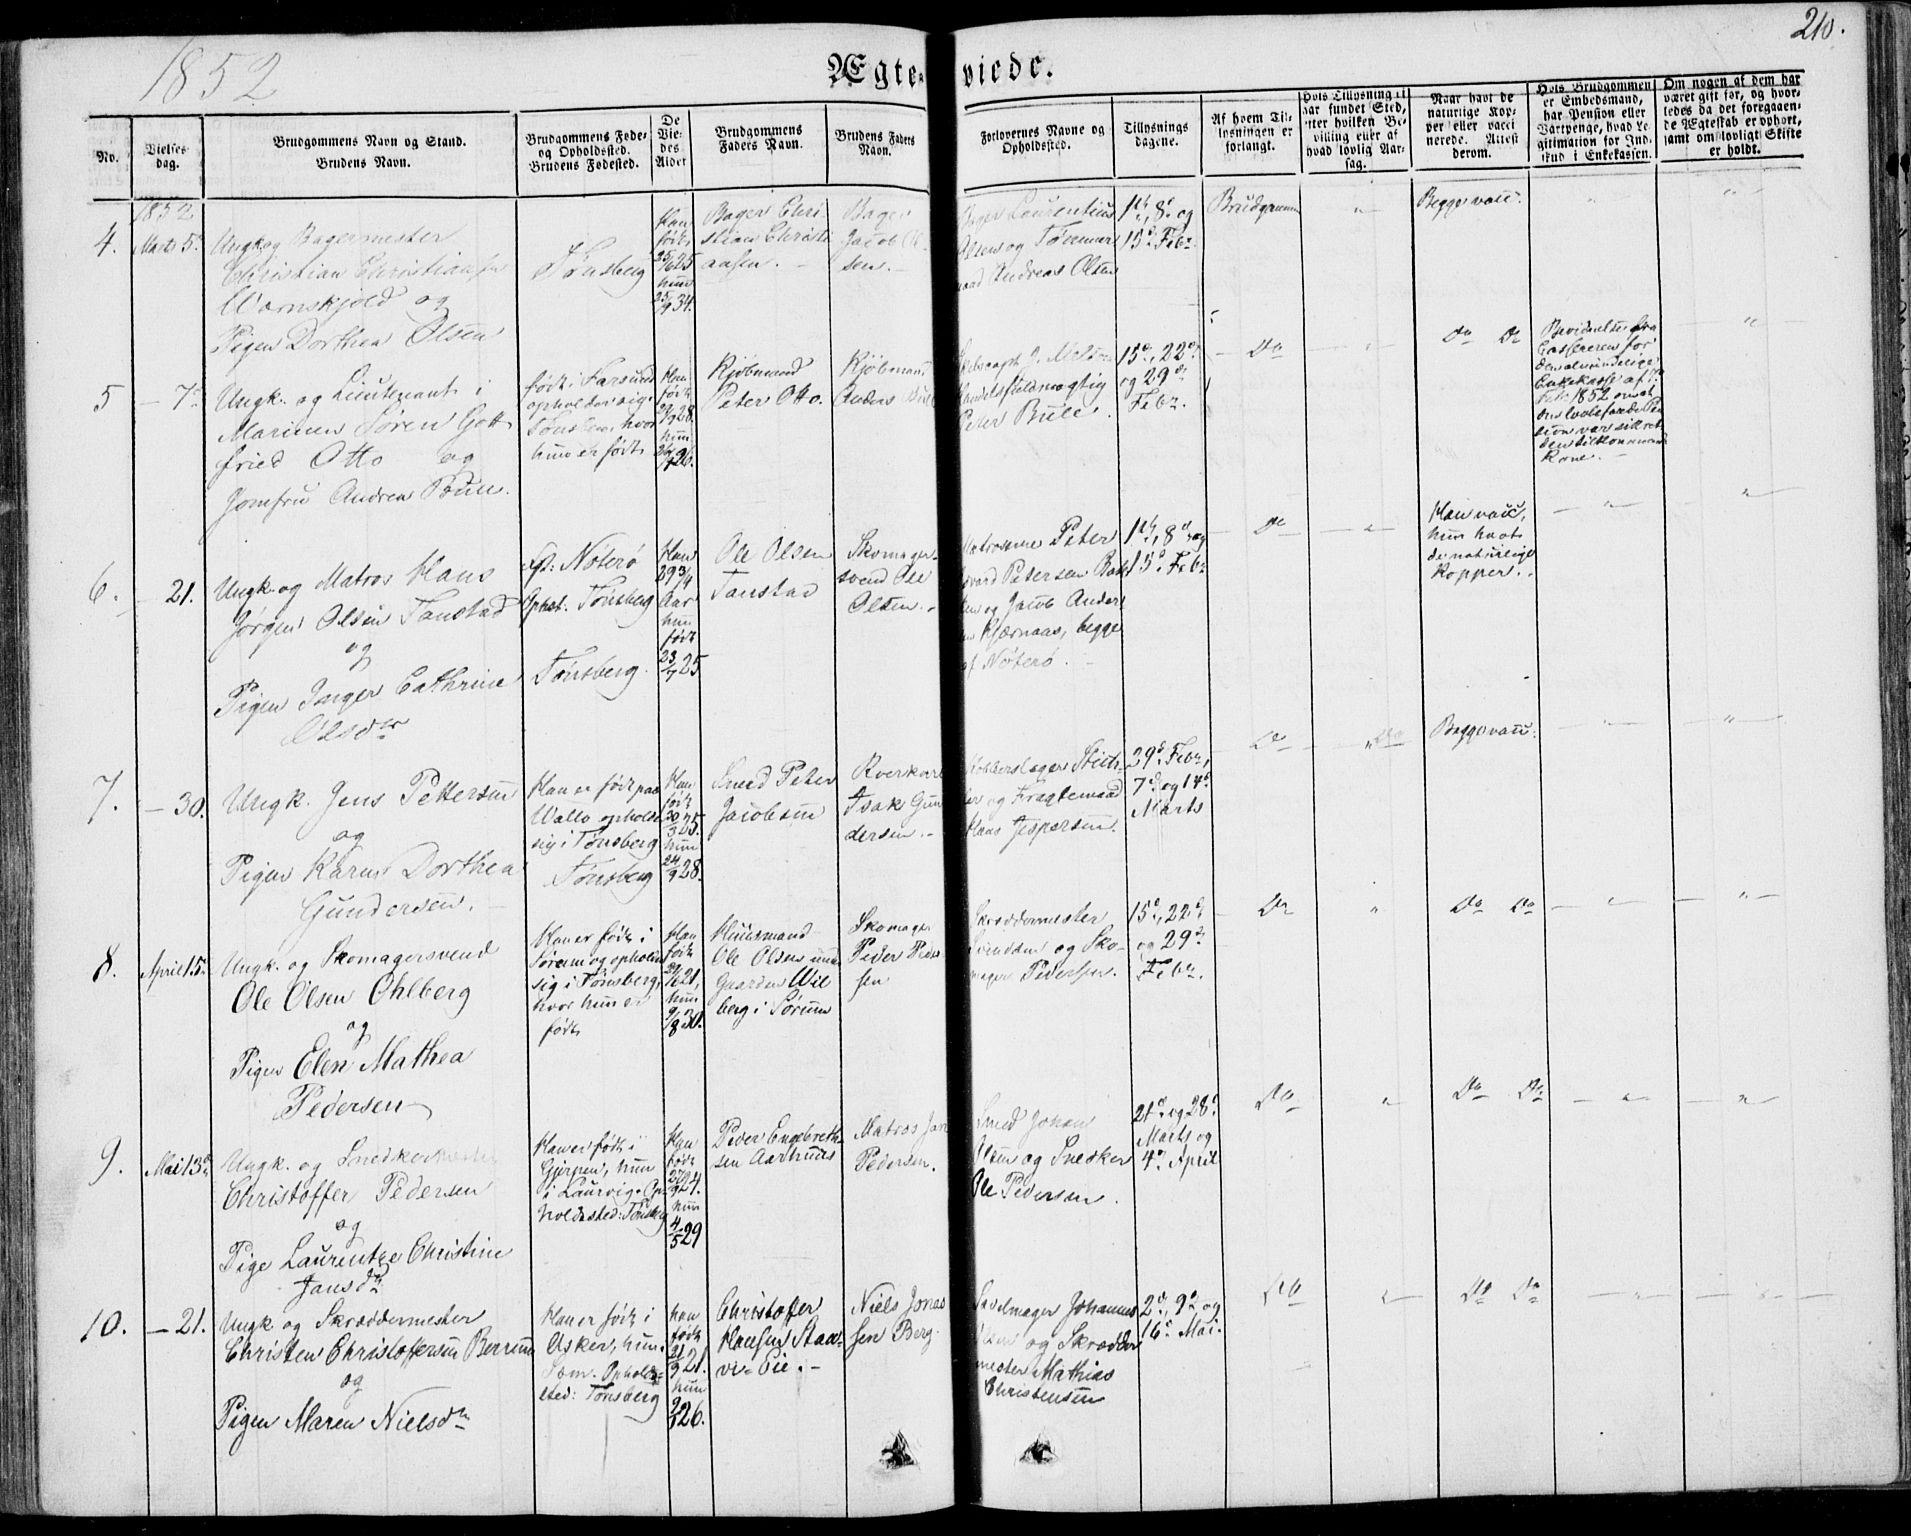 1852
Ægteviede.
210.
No.
Vielses dag.
Brudgommens Navn og Stand.
Brudens Navn.
Brudgommens Føde- og Opholdssted.
Brudens Fødested.
De Viedes Alder
Brudgommens Faders Navn.
Brudens Faders Navn.
Forlovernes Navne og Opholdssted.
Tillysnings dagene.
Af hvem Tillysningen er forlangt.
Hvis Tillysning ei har fundet Sted, efter hvilken Bevilling eller af hvad lovlig Aarsag.
Naar havt de naturlige Kopper eller vaccinerede. Attest derom.
Hvis Brudgommen er Embedsmand, har Pension eller Vartpenge, hvad Legitimation for Indskud i Enkekassen.
Om nogen af dem har været gift før, og hvorledes da det foregaaende Ægteskab er ophørt, samt om lovligt Skifte er holdt.
1852
4.
Marts 5.
Ungk og Bagermester
Christian Christiansen
Wornskjold og
Pigen Dorthea Olsen
Tønsberg
Han
født
25/6 25
hun
25/9 34.
Bager Chri-
stian Christi-
ansen.
Bager
Jacob Ol-
sen.
Bager Laurentius
Olsen og Tømmer
mand Andreas Olsen
1ste, 8de og
15de Febr.
Brudgommen
"
Begge vacc.
"
"
5
— 7de
Ungk. og Lieutenant i
Marinen Søren Gott-
fried Otto og
Jomfru Andrea Bull.
født i Farsund
opholder sig i
Tønsberg, hvor
hun er født
Han
født
28.
hun
26.
Kjøbmand
Peter Otto.
Kjøbmand
Anders Bull
Handelsfuldmægtig
Peter Bull.
15de, 22de
og 29de
Febr.
Do
"
Do Do
Bevidnelse fra
Cassereren for
den almindelige
Enkekasse af
Feb. 1852 om at
den lovbefalede Pen
sion var sikret
den tilkommende
Kone.
"
6.
— 21.
Ungk. og Matros Hans
Jørgen Olsen Fanstad
og
Pigen Inger Cathrine
Olsdtr
Fd: Nøterø
Ophst. Tønsberg
Tønsberg.
Han
29 3/4
Aar
hun
født
23/7 25
Ole Olsen
Fanstad
Skomager-
svend Ole
Olsen.
Matroserne Peter
Edvard Petersen Bak
ken og Jacob Ander
sen Kjærnaas, begge
af Nøterø.
1ste, 8de og
15de Febr
Do
"
Han vacc,
hun havt
de naturlige
Kopper.
"
"
7.
— 30.
Ungk. Jens Pettersen
og
Pigen Karen Dorthea
Gundersen.
Han er født paa
Wallø opholder
sig i Tønsberg
Tønsberg
Han
født
30/3 25.
hun
24/9 28.
Smed Peter
Jacobsen
Kverkarl
Isak Gun
dersen.
Kobberslager Stich-
ler og Fragtemand
Hans Jespersen.
29de Febr,
7de og 14de
Marts
Do
"
Begge vacc.
"
"
8.
April 15.
Ungk. og Skomagersvend
Ole Olsen Ohlberg
og
Pigen Elen Mathea
Pedersen
Han er født i
Sørum og opholder
sig i Tønsberg,
hvor hun er
født
Han
født
21,
hun
9/8 30.
Huusmand
Ole Olsen under
Gaarden Wil
berg i Sørum
Skomager
Peder Peder
sen
Skræddermester
Svendsen og Sko-
mager Pedersen.
15de, 22de
og 29de
Febr.
Do
"
Do Do
"
"
9.
Mai 13de
Ungk. og Snedkermester
Christoffer Pedersen
og
Pige Laurentze Christine
Jansdtr
Han er født i
Gjerpen, hun
i Laurvig. Op-
holdssted: Tønsberg
Han
født
27/9 24.
hun
4/5 29
Peder Engebreth-
sen Aarhuus
Matros Jan
Pedersen.
Smed Johan
Olsen og Snedker
Ole Pedersen.
21de og 28de
Marts og
4de April
Do
"
Do Do
"
"
10.
— 21.
Ungk og Skræddermester
Christen Christoffersen Berrum
og
Pigen Maren Nielsdtr
Han er født i
Asker, hun i
Sem. Opholds-
sted: Tønsberg
Han
født
21/9 21.
hun
26.
Christoffer
Hansen Staa-
vi-Eie.
Niels Jonas
sen Berg.
Sadelmager Johannes
Olsen og Skrædder
mester Mathias
Christensen
2den, 9de og
16de Mai.
Do
"
Do Do
"
"